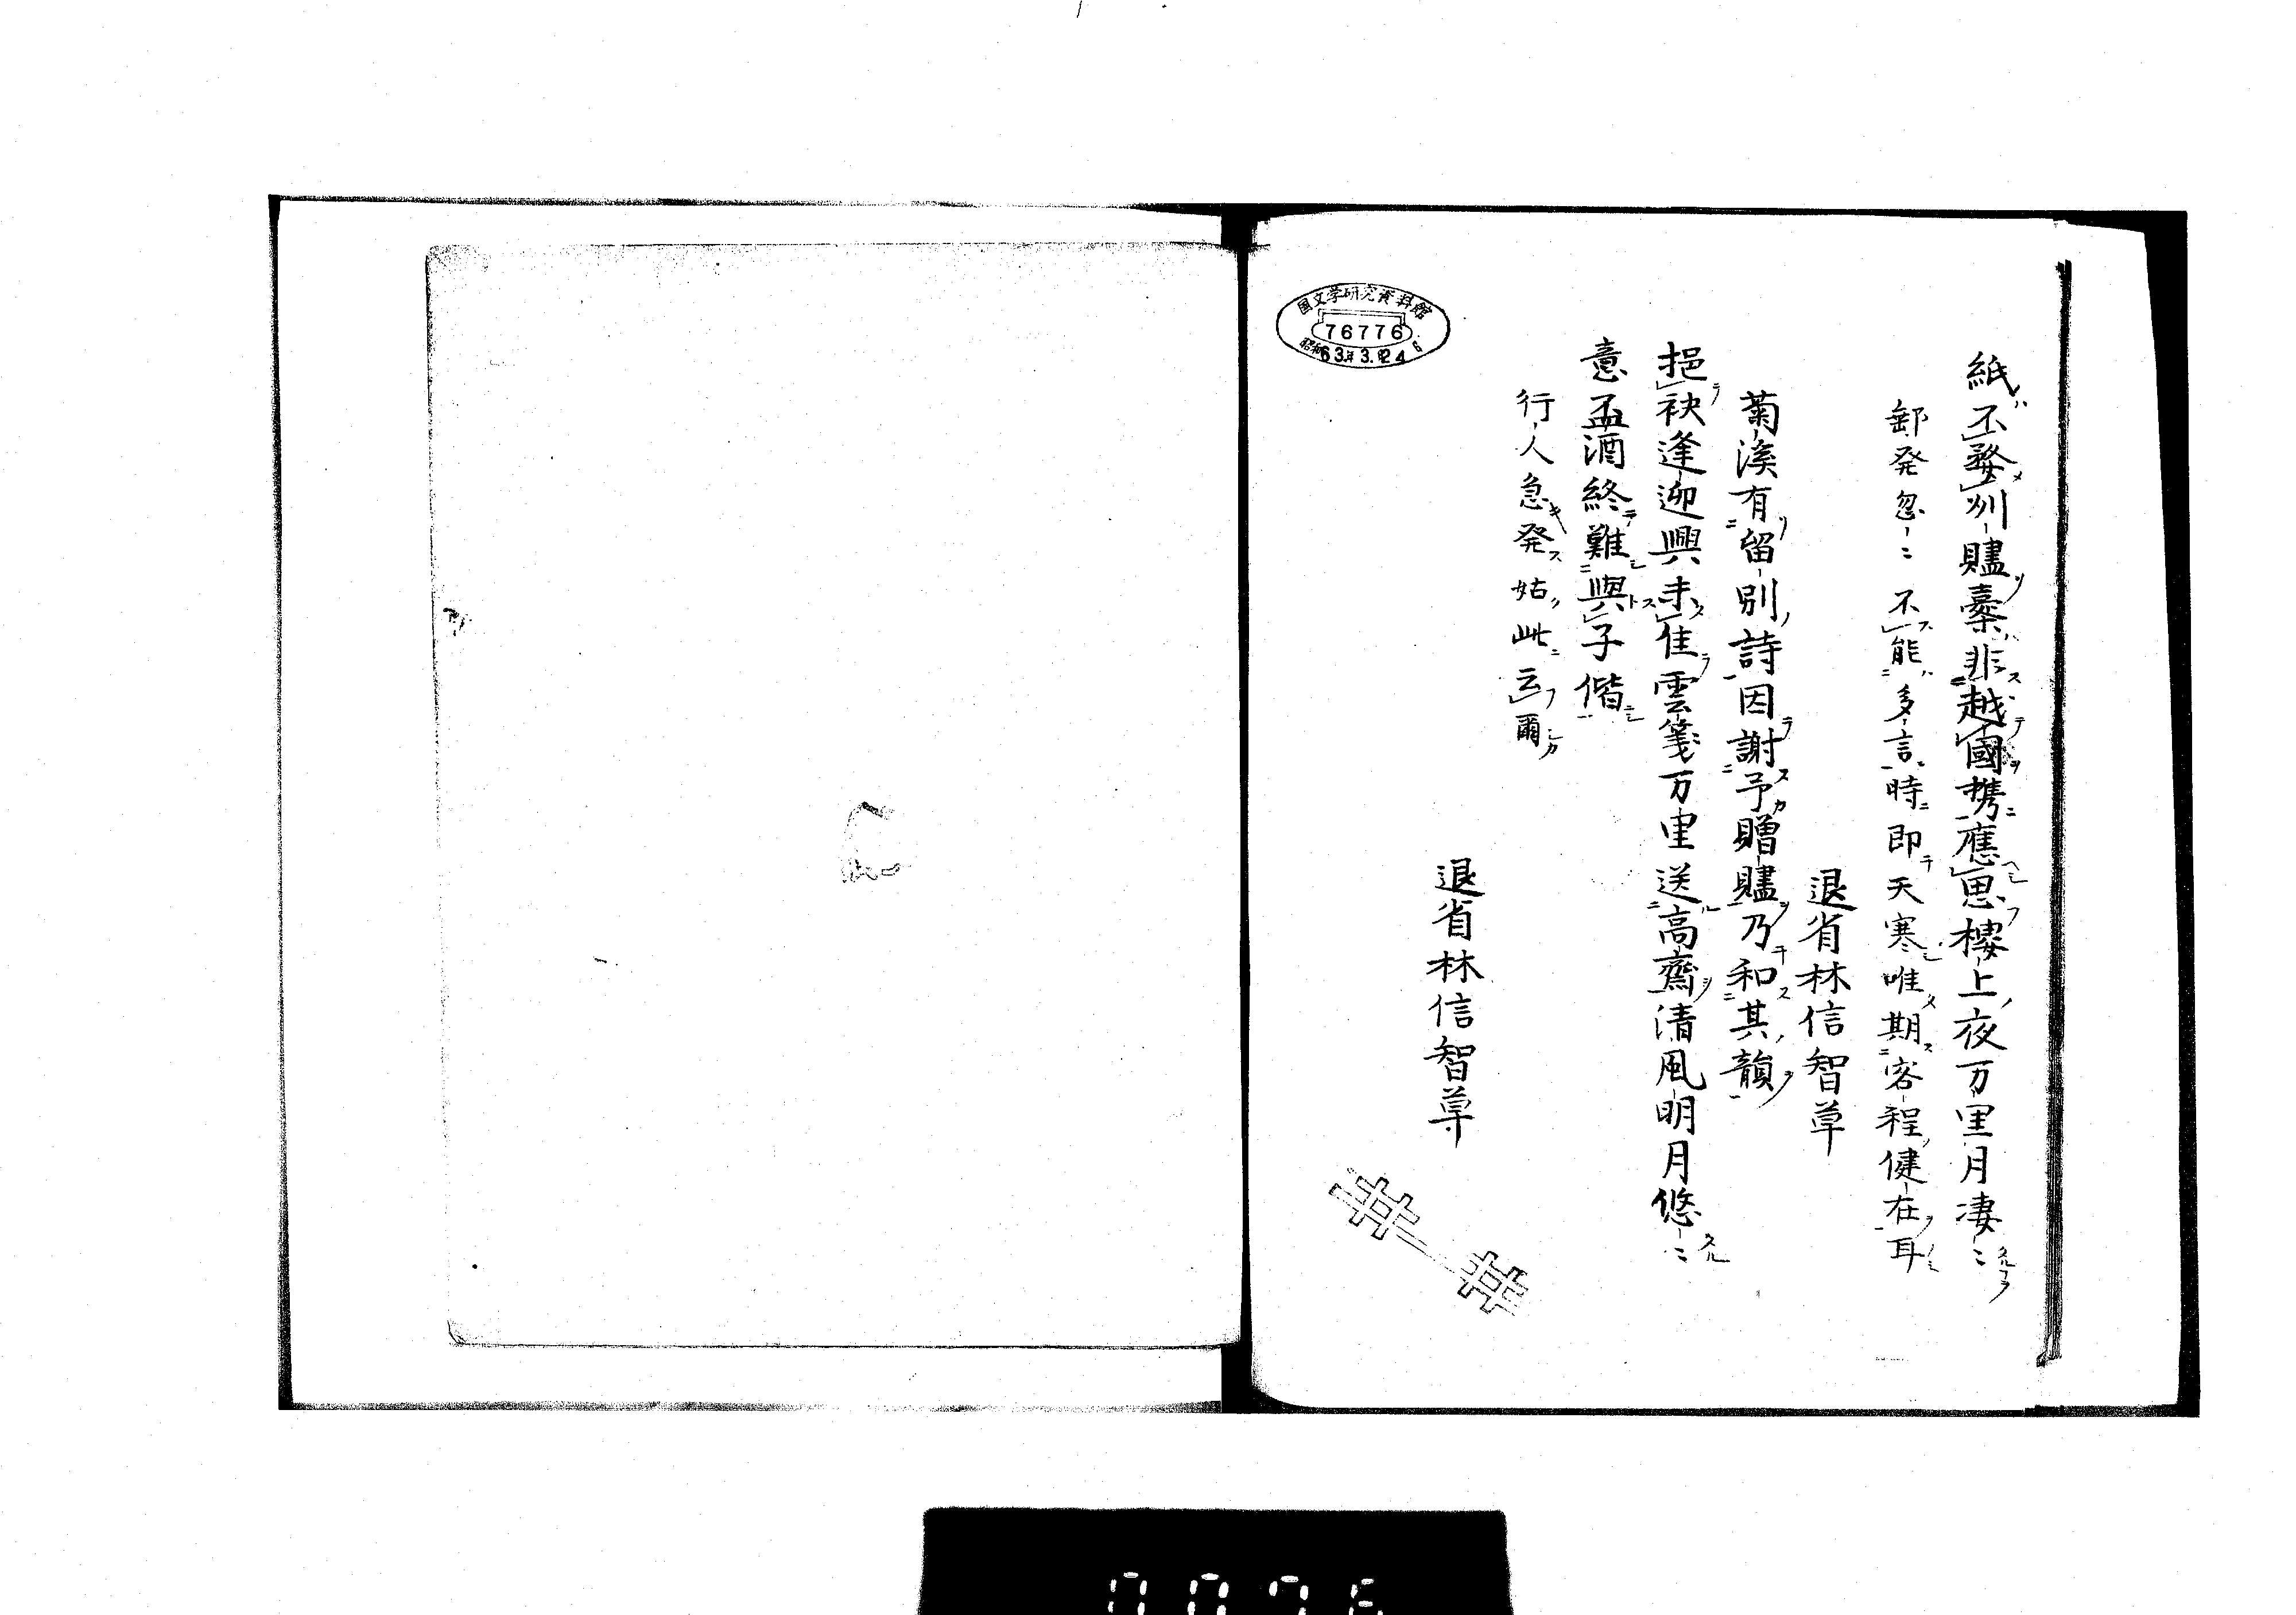 紙不務刋贐橐非越國携應思樓上夜万里月凄〻
郵発忽〻不能多言時即天寒唯期客程健在耳
退省林信智草
菊溪有留別詩因謝予贈贐乃和其韻
挹袂逢迎興未佳雲箋万里送高齋清風明月悠〻
意盃酒終難與子偕
行人急発姑此云爾
退省林信智草
国文学研究資料館
76776
昭和63年3.24